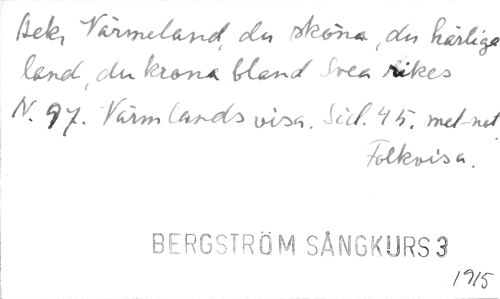 Ack, Värmeland, du sköna, du härliga
land, du krona bland Svea rikes
N. 97. Värmlands visa. Sid. 45. mel-not.
Folkvisa.
BERGSTRÖM SÅNGKURS 3
1915